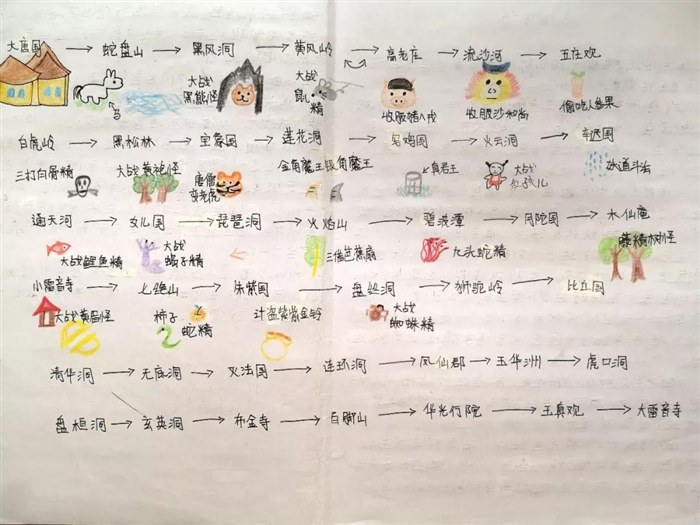 大唐国 → 蛇盘山 → 黑风洞 → 黄风岭 → 高老庄 → 流沙河 → 五庄观
马
大战
黑熊怪
大战
鼠
精
收服猪八戒
收服沙和尚
偷吃人参果
白虎岭 → 黑松林 → 宝象国 → 莲花洞 → 乌鸡国 → 火云洞 → 车迟国
三打白骨精
大战黄袍怪
唐僧
变老虎
金角魔王银角魔王
大战
红孩儿
水道斗法
通天河 → 女儿国 → 琵琶洞 → 火焰山 → 碧波潭 → 木仙庵
大战鲤鱼精
大战
蝎子精
三借芭蕉扇
九头蛇精
藤精树怪
小雷音寺 → 七绝山 → 朱紫国 → 盘丝洞 → 狮驼岭 → 比丘国
大战黄眉怪
柿子
蛇精
计盗紫金铃
大战
蜘蛛精
清华洞 → 无底洞 → 灭法国 → 连环洞 → 凤仙郡 → 玉华洲 → 虎口洞
盘桓洞 → 玄英洞 → 布金寺 → 华光行院 → 玉真观 → 大雷音寺